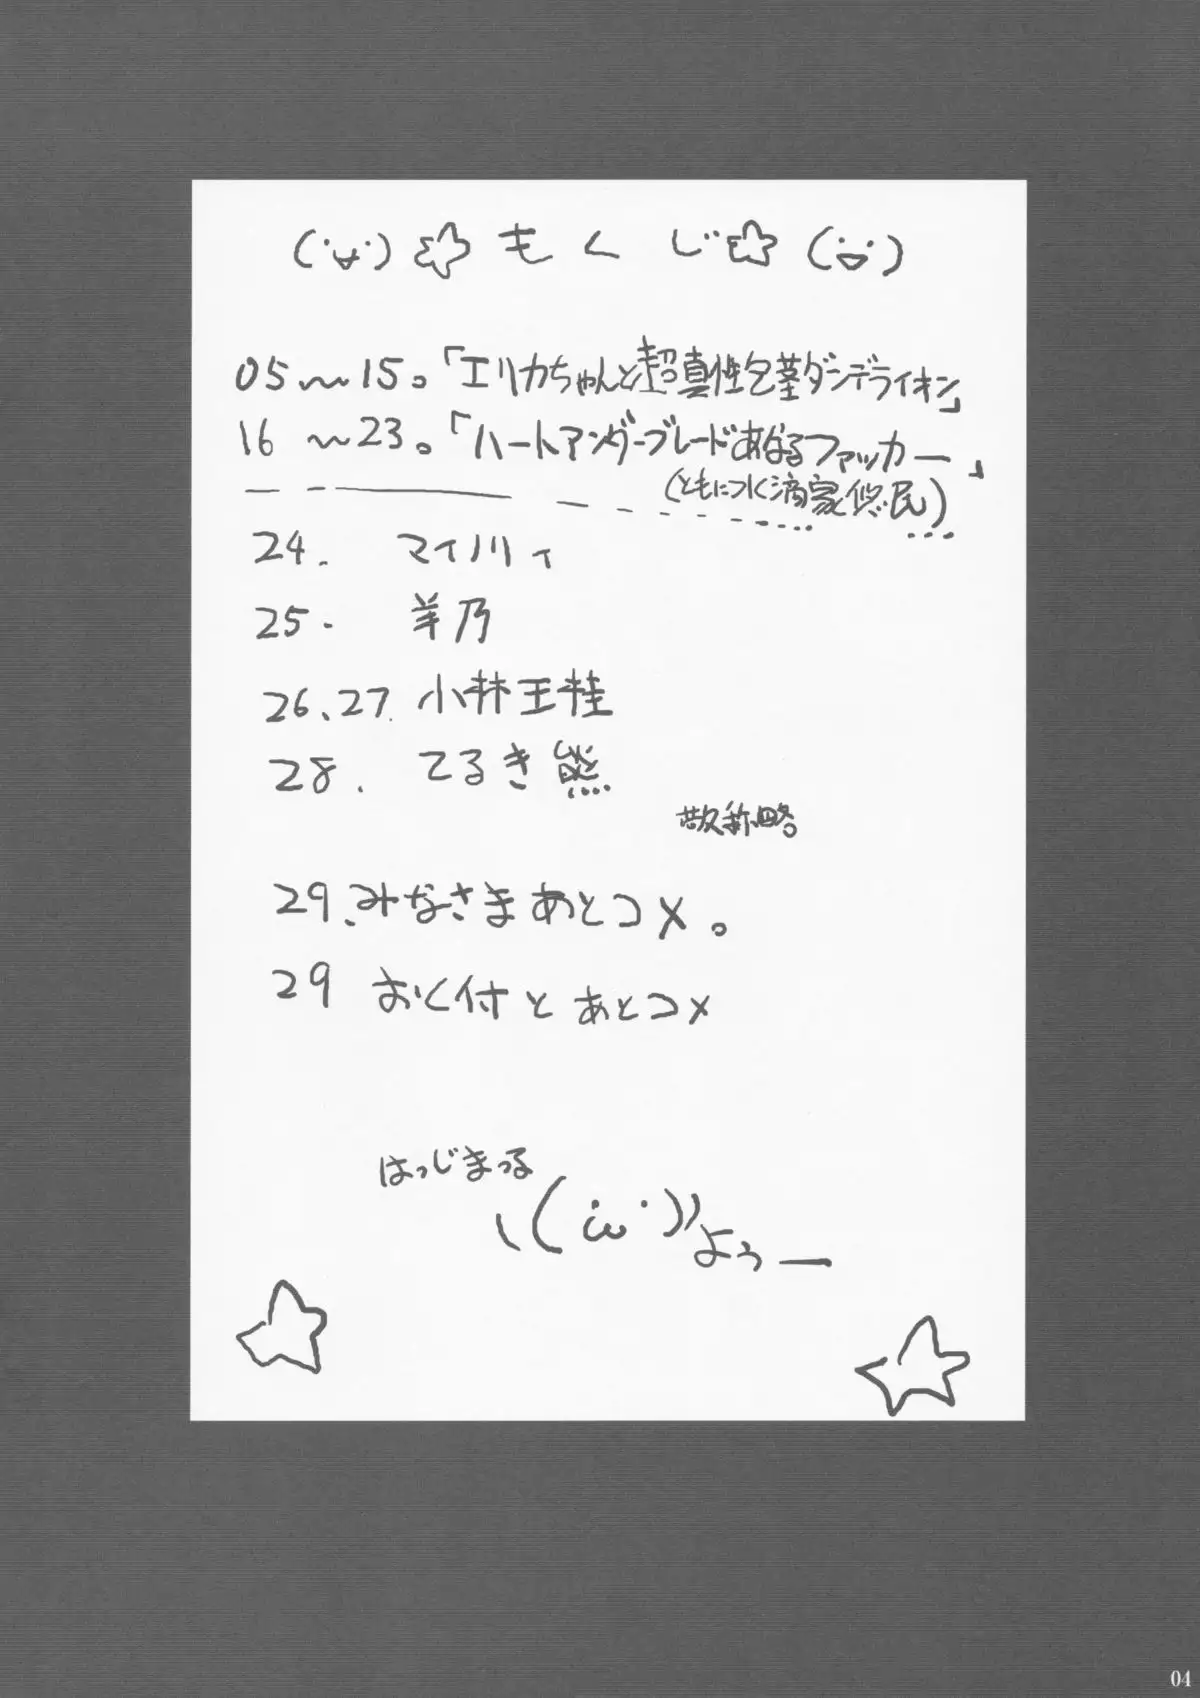 (・∀・)☆もくじ☆(・∀・)
05〜15。「エリカちゃんと超真性包茎ダンデライオン」
16〜23。「ハートアンダーブレードあなるファッカー」
(ともに 水滴家悠民)
24. マイノリィ
25. 羊乃
26、27. 小林王桂
28. てるき熊
敬称略。
29、みなさまあとコメ。
29 おく付とあとコメ
はっじまっる
ヽ(・ω・)ノよぅー
04